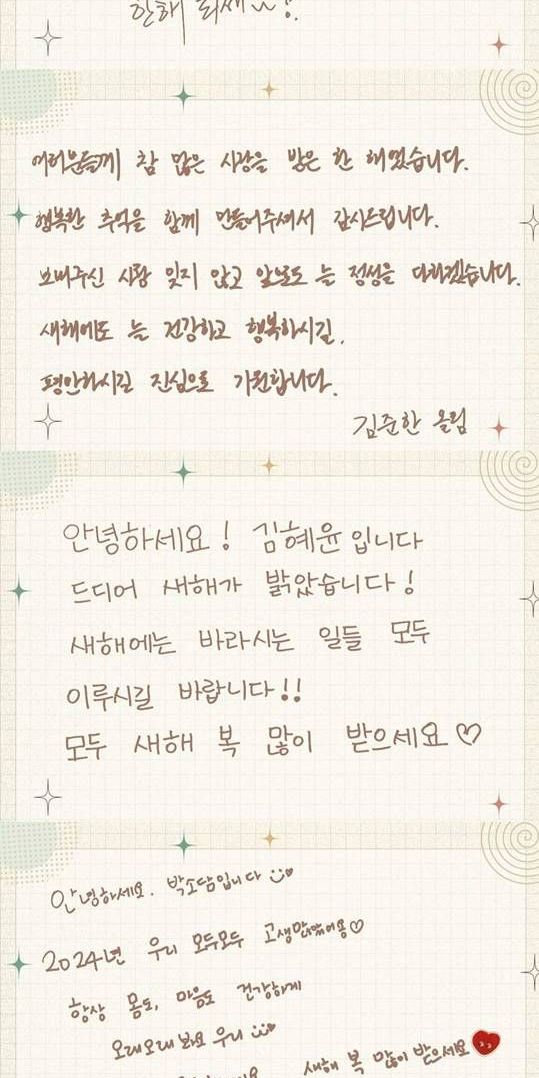 한해 되세
여러분들께 참 많은 사랑을 받은 한 해였습니다.
행복한 추억을 함께 만들어주셔서 감사드립니다.
보내주신 사랑 잊지 않고 앞날도 늘 정성을 다하겠습니다.
새해에도 늘 건강하고 행복하시길,
평안하시길 진심으로 기원합니다.
김준한 올림
안녕하세요! 김혜윤입니다
드디어 새해가 밝았습니다!
새해에는 바라시는 일들 모두
이루시길 바랍니다!!
모두 새해 복 많이 받으세요♡
안녕하세요. 박소담입니다
2024년 우리 모두모두 고생많았어용♡
항상 몸도, 마음도 건강하게
오래오래 봐요 우리
새해 복 많이 받으세요